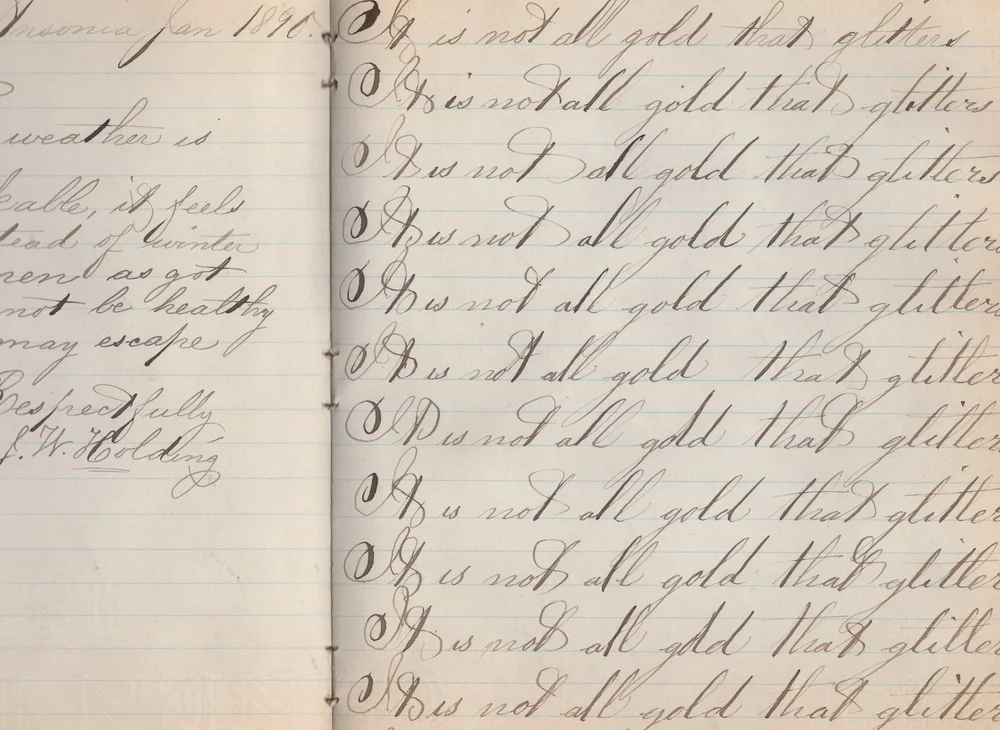 Ansonia Jan 1890.
weather is
eable, it feels
tead of winter
men as got
not be healthy
may escape
Respectfully
J. W. Holding
It is not all gold that glitters
It is not all gold that glitters
It is not all gold that glitters
It is not all gold that glitters
It is not all gold that glitters
It is not all gold that glitter
It is not all gold that glitter
It is not all gold that glitter
It is not all gold that glitter
It is not all gold that glitter
It is not all gold that glitter